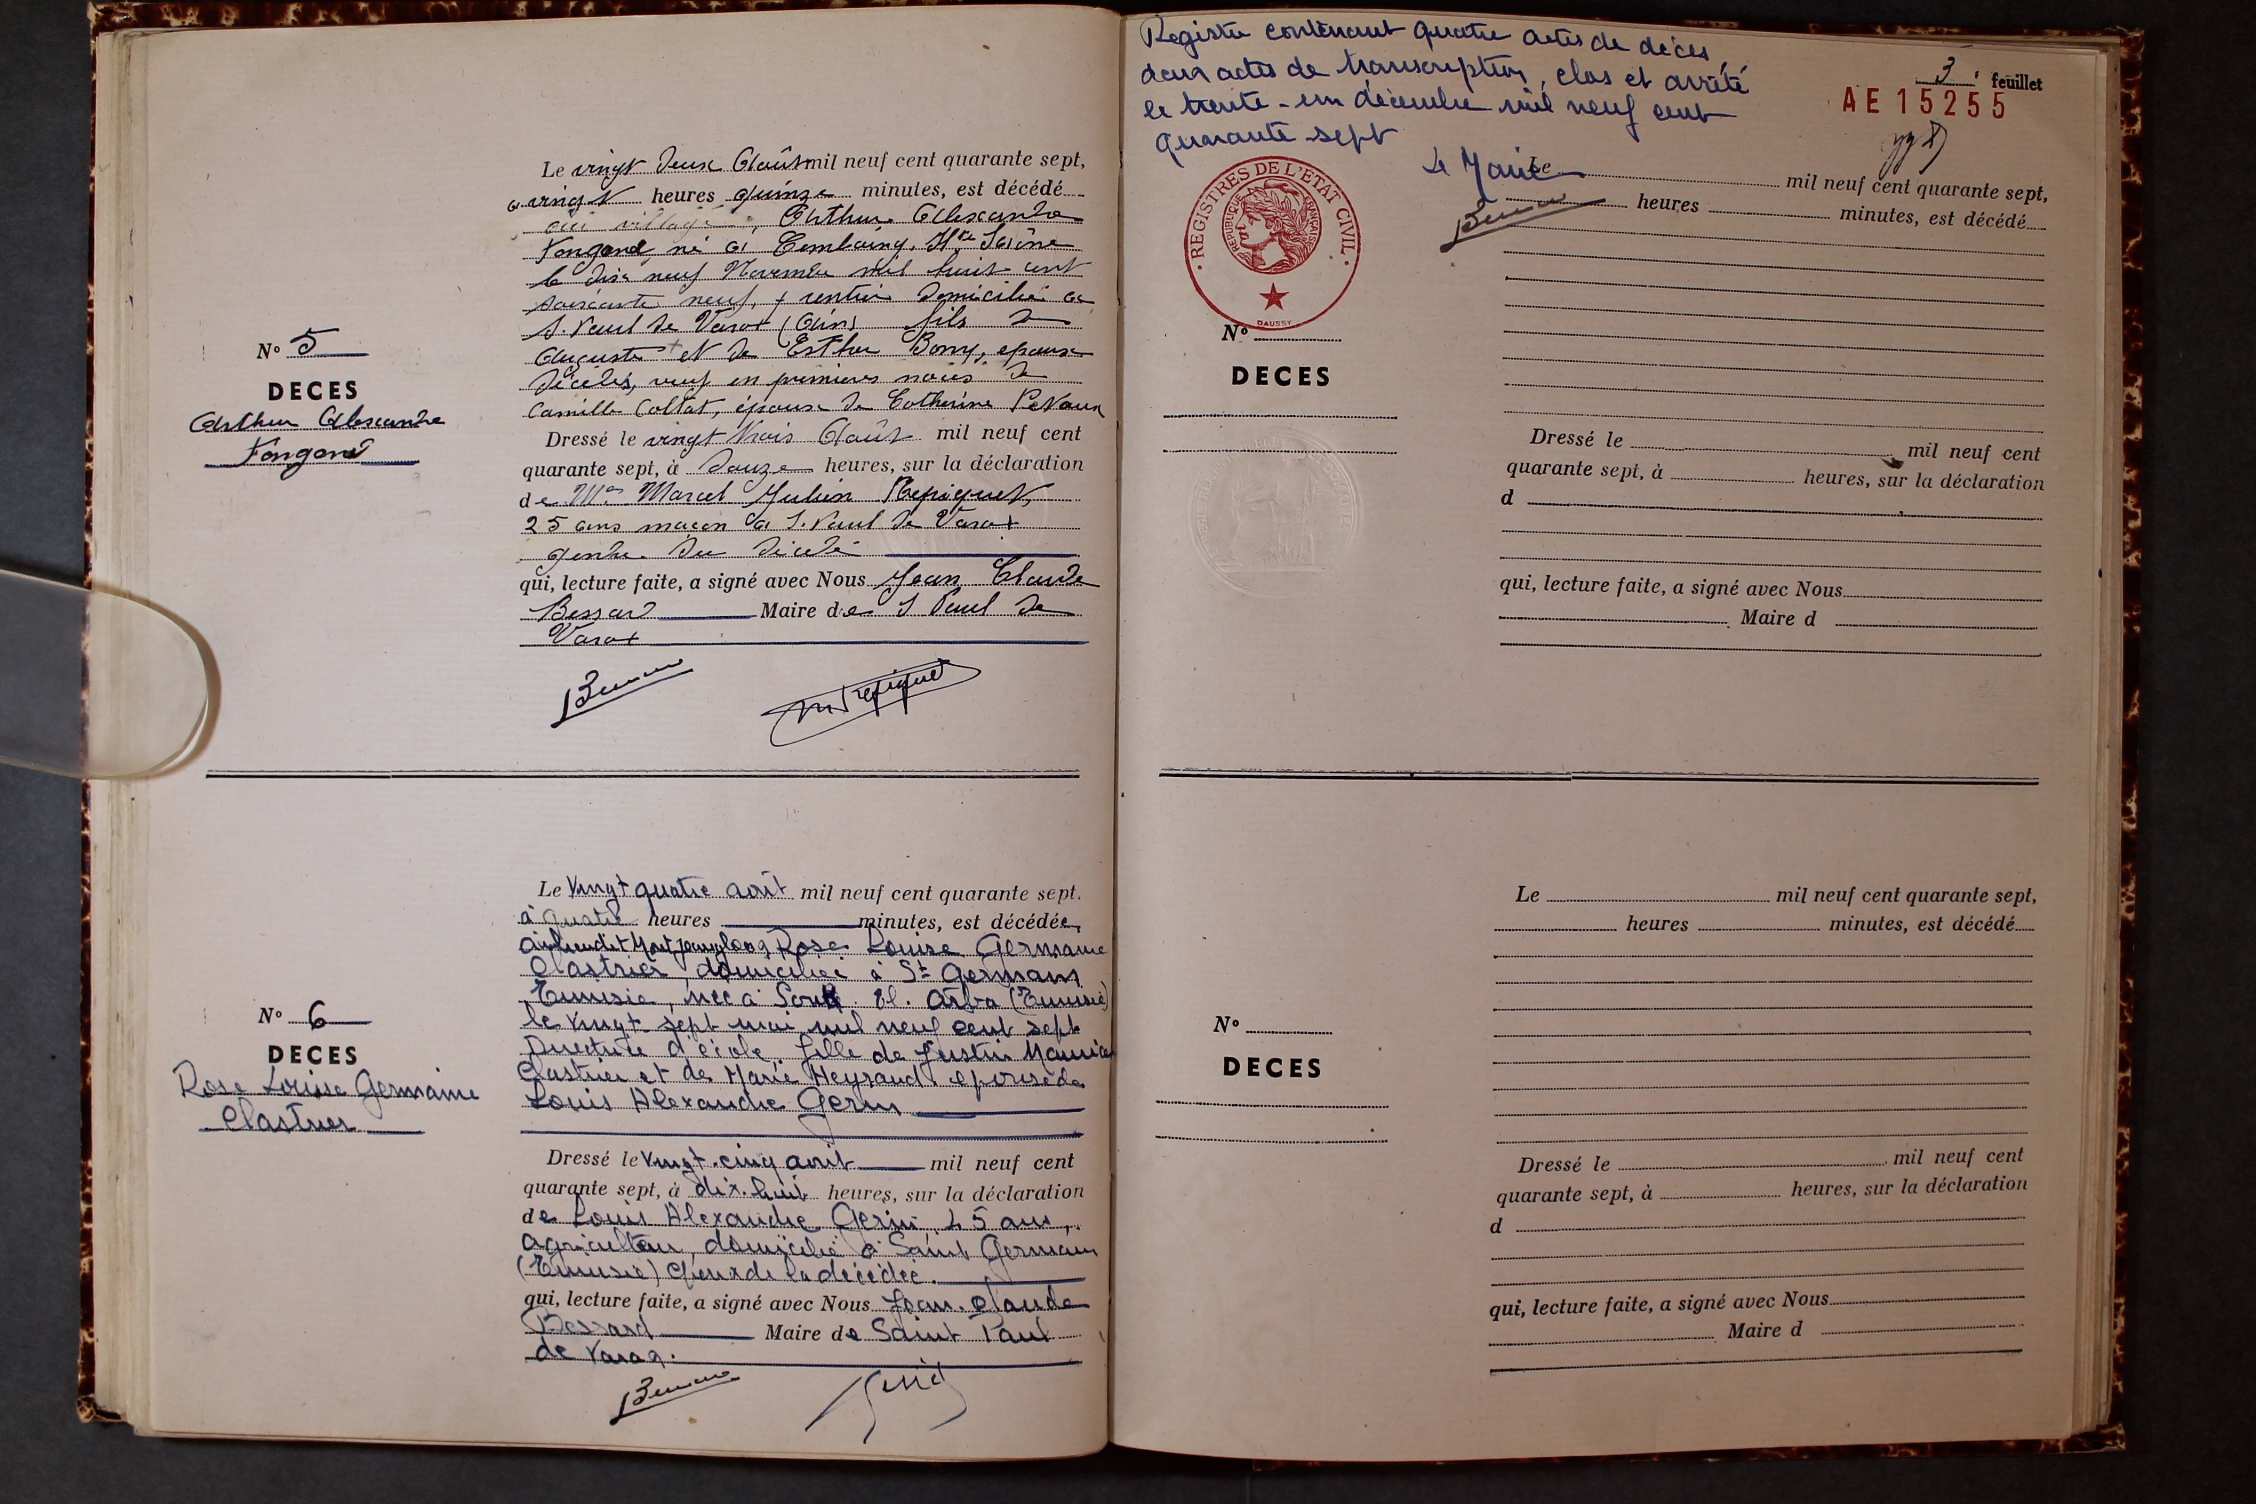 Le vingt deux Août mil neuf cent quarante sept,
à vingt heures quinze minutes, est décédé
au village, Arthur Alexandre
Fongond né à Hte Saône
le dix neuf Novembre mil huit cent
soixante neuf, rentier domicilié à
S. Paul de Varax (Ain) fils de
Auguste et de Esther Bony, époux
décédés, veuf en premières noces de
Camille Collat, époux de Catherine
N° 5
DECES
Arthur Alexandre
Fongond
Dressé le vingt trois Août mil neuf cent
quarante sept, à douze heures, sur la déclaration
de Mr Marcel Julien Repiquet,
25 ans maçon à S. Paul de Varax
gendre du décédé
qui, lecture faite, a signé avec Nous Jean Claude
Bessard Maire de S Paul de
Varax
Le vingt quatre août mil neuf cent quarante sept.
à quatre heures minutes, est décédée,
au lieudit Rose Louise Germaine
Clastrier, domiciliée à St Germain
Tunisie, née à Souk El. Arba (Tunisie)
le vingt sept mai mil neuf cent sept
Directrice d'école, fille de Justin Maurice
Clastrier et de Marie Meyraud épouse de
Louis Alexandre Gerin
N° 6
DECES
Rose Louise Germaine
Clastrier
Dressé le vingt-cinq août mil neuf cent
quarante sept, à dix-huit heures, sur la déclaration
de Louis Alexandre Gerin, 45 ans,
agriculteur, domicilié à Saint Germain
(Tunisie) époux de la décédée.
qui, lecture faite, a signé avec Nous Jean-Claude
Bessard Maire de Saint Paul
de Varax.
Registre contenant quatre actes de décès,
deux actes de transcription, clos et arrêté
le trente-un décembre mil neuf cent
quarante sept
Le Maire
3 feuillet
AE 15255
REGISTRES DE L'ÉTAT CIVIL
REPUBLIQUE FRANÇAISE
DAUSSY
Le mil neuf cent quarante sept,
heures minutes, est décédé
N°
DECES
Dressé le mil neuf cent
quarante sept, à heures, sur la déclaration
d
qui, lecture faite, a signé avec Nous
Maire d
Le mil neuf cent quarante sept,
heures minutes, est décédé
N°
DECES
Dressé le mil neuf cent
quarante sept, à heures, sur la déclaration
d
qui, lecture faite, a signé avec Nous
Maire d